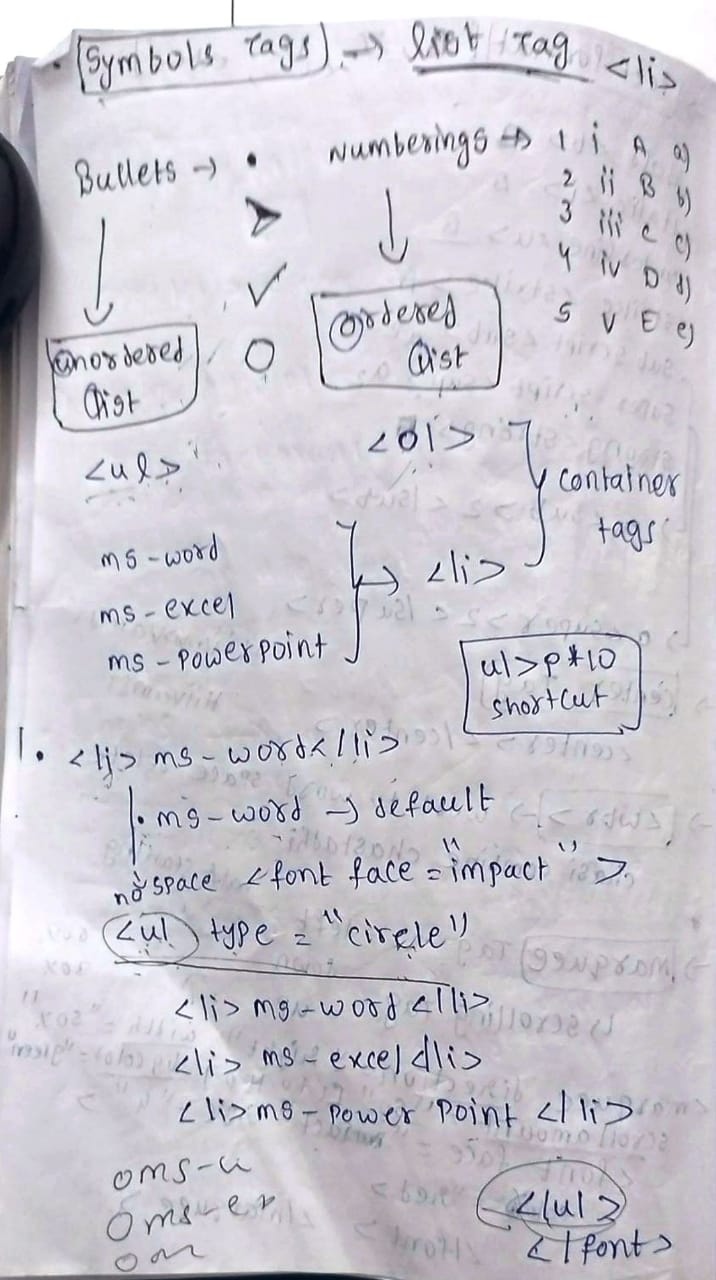 . Symbols Tags → list tag <li>
Bullets → • Numberings → 1 i A a)
2 ii B b)
3 iii c c)
4 iv D d)
5 v E e)
unordered list
ordered list
<ul>
<ol>
container tags
ms-word
ms-excel
ms-powerpoint
→ <li>
ul>p*10
shortcut
1. <li> ms-word</li>
. ms-word → default
no space <font face = "impact">
<ul type = "circle"
<li> ms-word </li>
<li> ms-excel </li>
<li> ms-power point </li>
o ms-w
o ms-ex
o m
</ul>
</font>